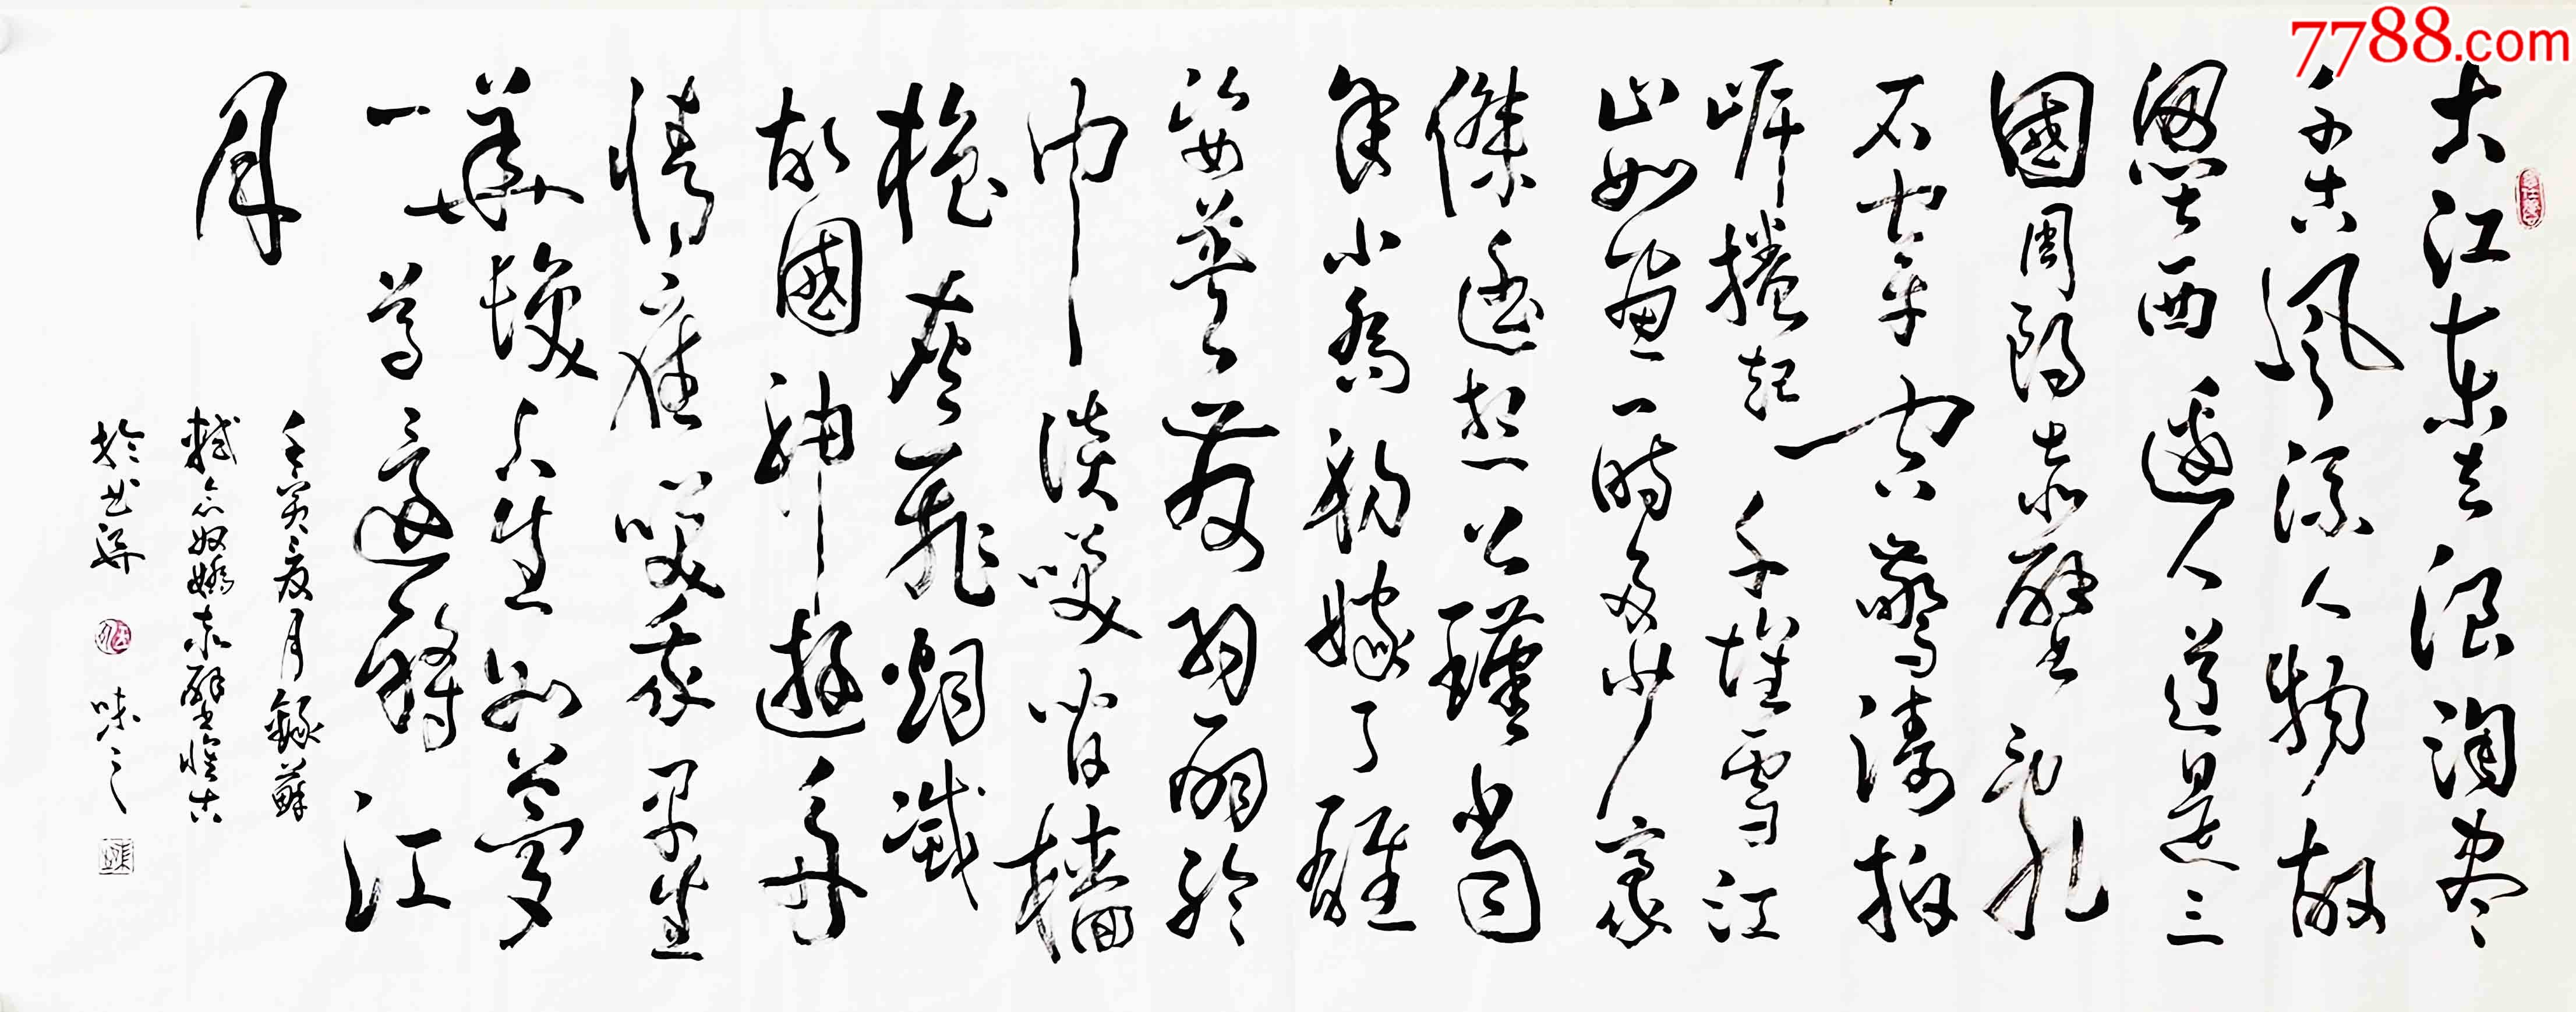 7788.com
大江東去浪淘盡
千古風流人物故
壘西邊人道是三
國周郎赤壁亂
石穿空驚濤拍
岸捲起千堆雪江
山如畫一時多少豪
傑遙想公瑾當
年小喬初嫁了雄
姿英發羽扇綸
巾談笑間檣
櫓灰飛烟滅
故國神遊多
情應笑我早生
華髮人生如夢
一尊還酹江
月
壬寅夏月錄蘇
軾念奴嬌赤壁懷古
於 味之